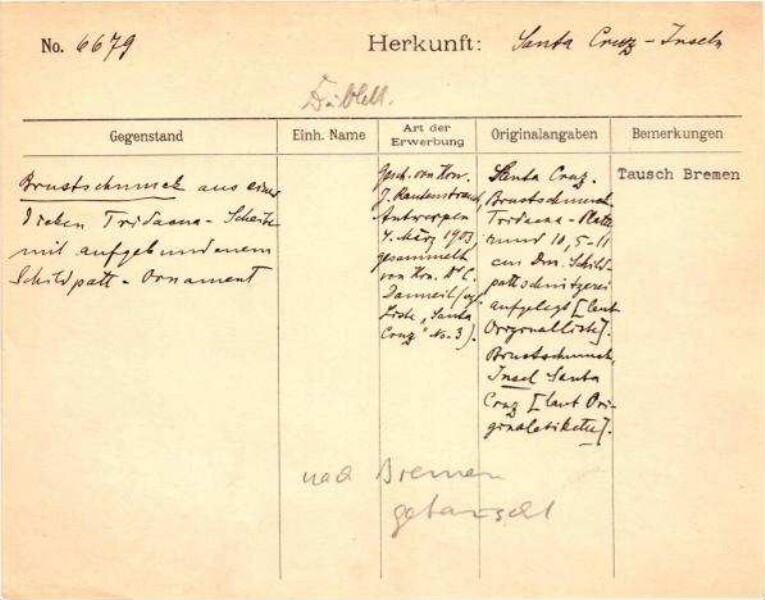 No. 6679 Herkunft: Santa Cruz - Inseln
Dublett.
Gegenstand Einh. Name Art der Erwerbung Originalangaben Bemerkungen
Brustschmuck aus einer
dicken Tridacna - Scheibe
mit aufgebundenem
Schildpatt - Ornament
Gesch. von Hrn.
J. Rautenstrauch,
Antwerpen
4. März 1903,
gesammelt
von Hrn. Dr C.
Danneil (vgl.
Liste „Santa
Cruz" No. 3).
Santa Cruz.
Brustschmuck
Tridacna - Platte
rund 10,5-11
cm Dm. Schild-
pattschnitzerei
aufgelegt [laut
Originalliste].
Brustschmuck,
Insel Santa
Cruz [laut Ori-
ginaletikette].
Tausch Bremen
nach Bremen
getauscht